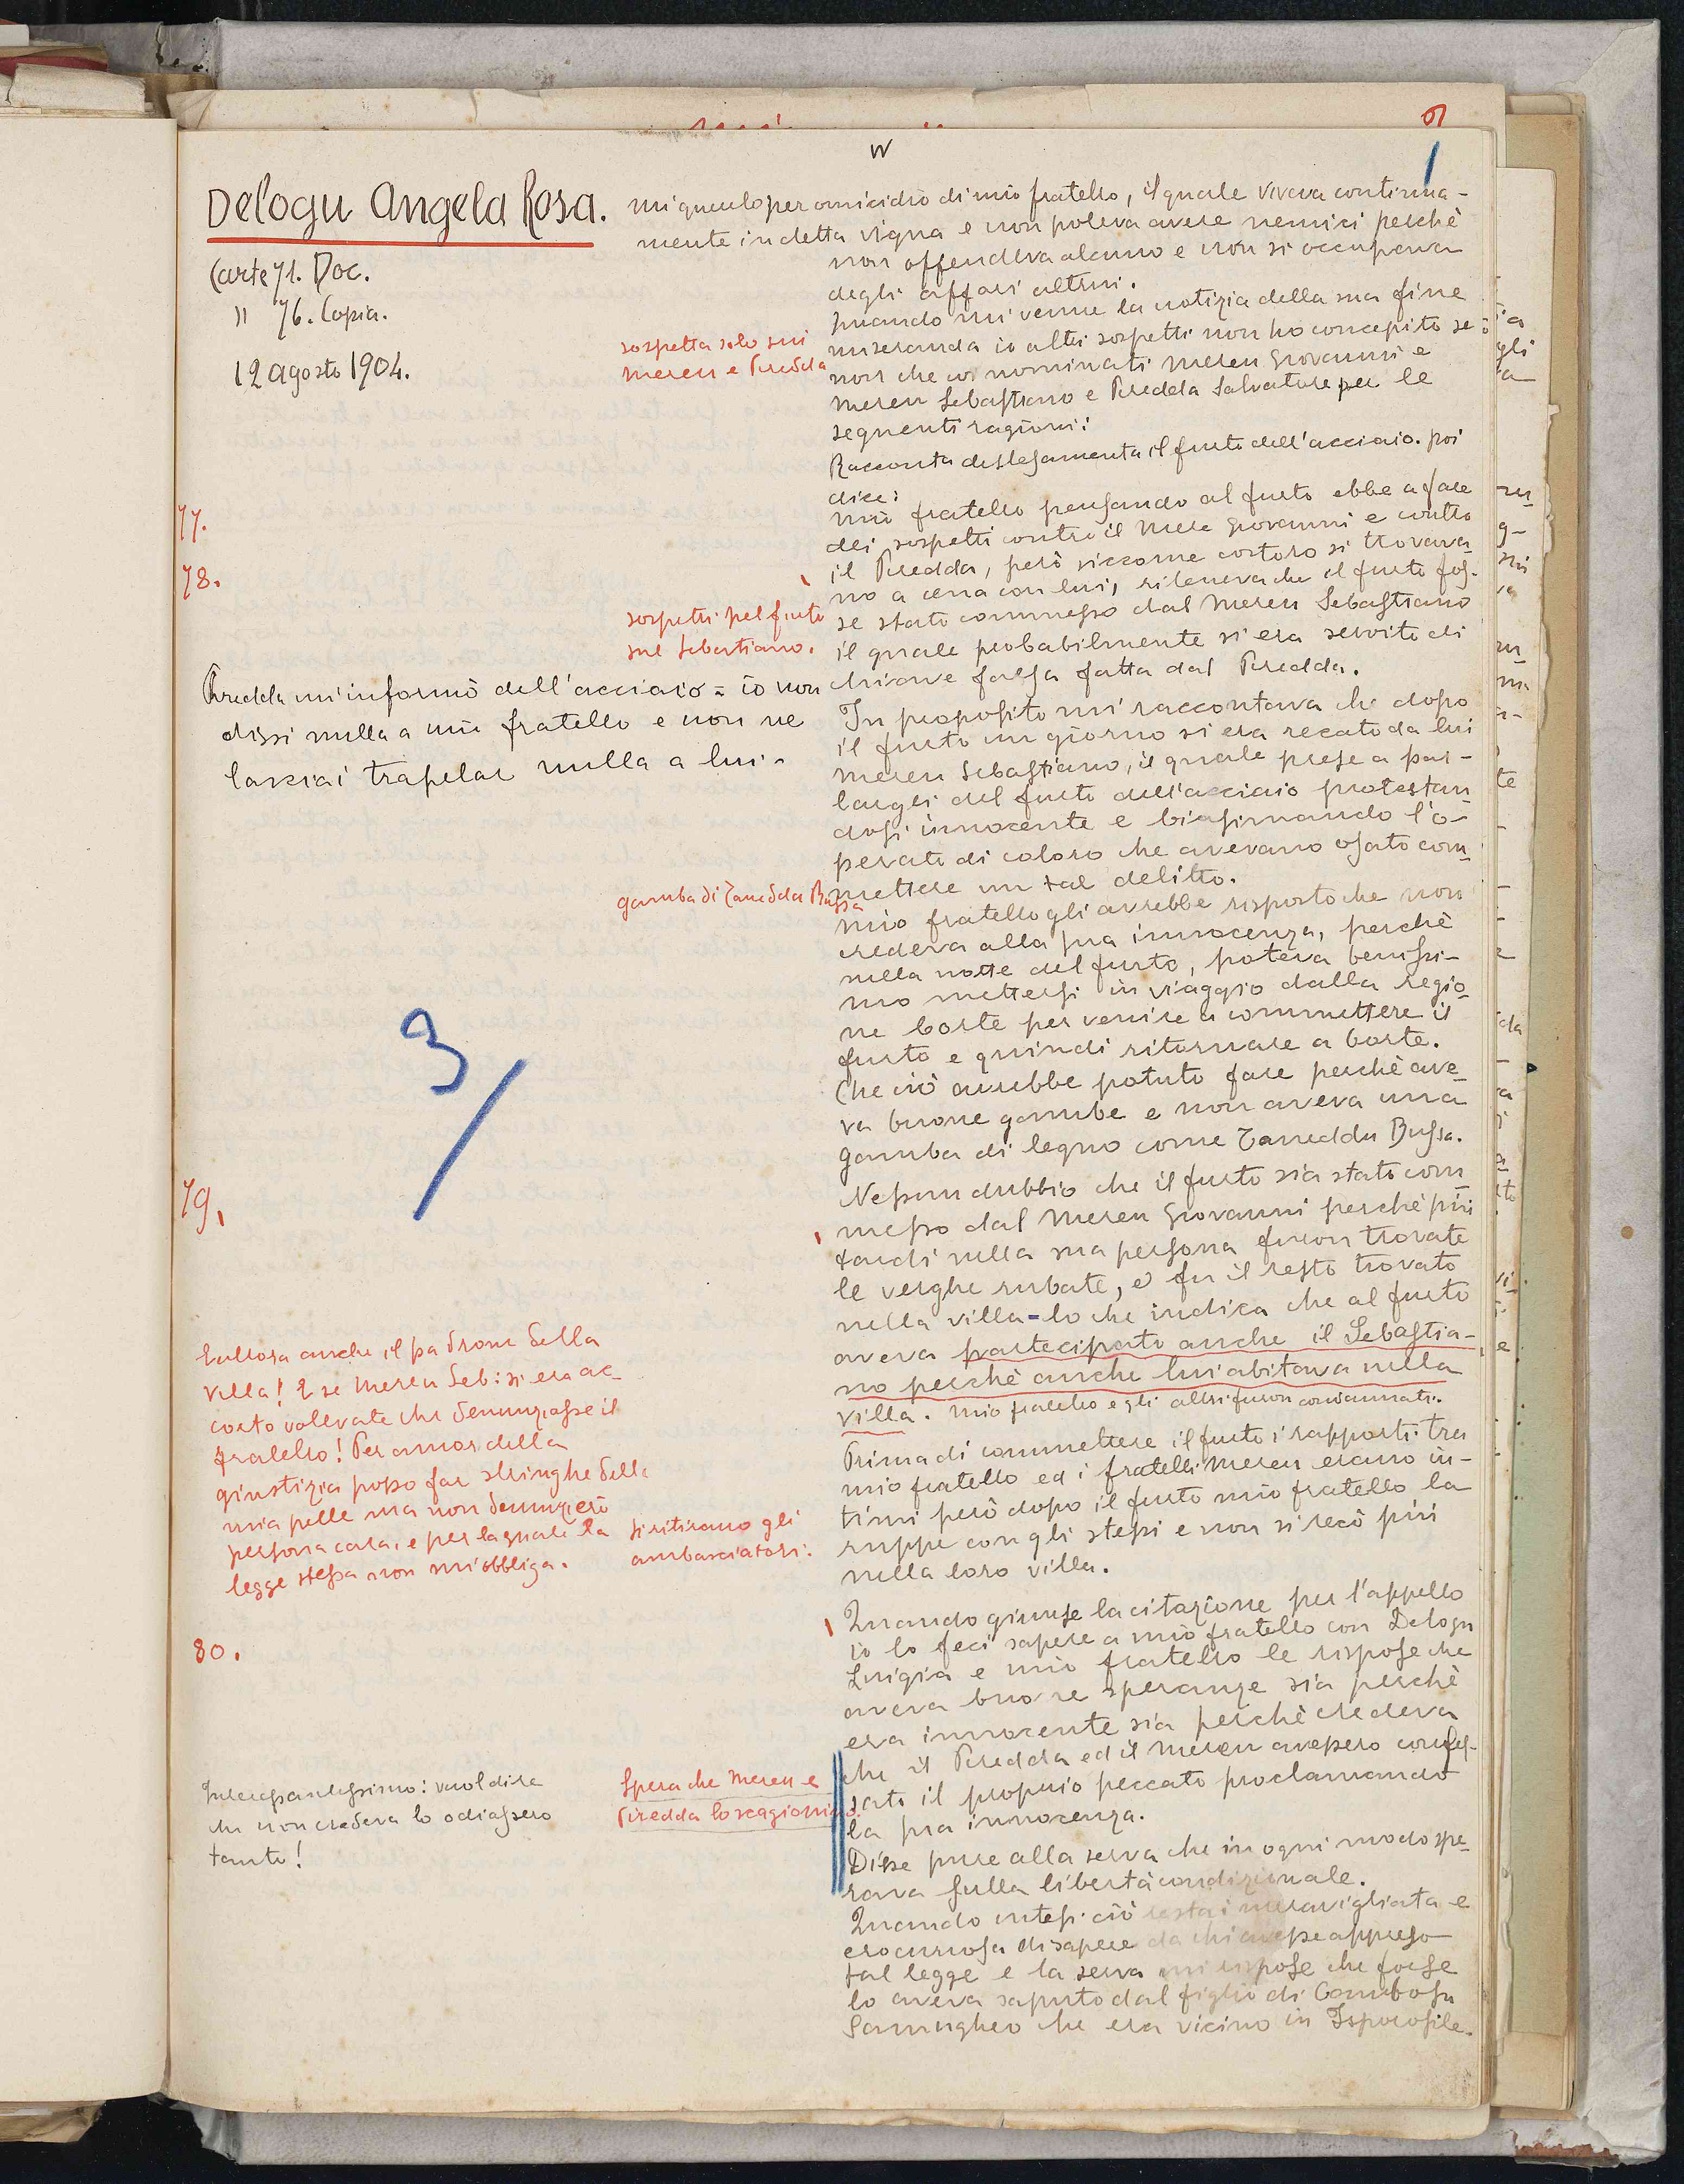 9
IV
Delogu Angela Rosa.
Carte 71. Doc.
" 76. Copia.
12 agosto 1904.
mi querelo per omicidio di mio fratello, il quale viveva continua-
mente in detta vigna e non poteva avere nemici perchè
non offendeva alcuno e non si occupava
degli affari altrui.
Quando mi venne la notizia della sua fine
miseranda io altri sospetti non ho concepito se
non che coi nominati Mereu Giovanni e
Mereu Sebastiano e Piredda Salvatore per le
seguenti ragioni:
sospetta solo sui
Mereu e Piredda
Racconta distesamente il furto dell'acciaio. poi
dice:
77.
mio fratello pensando al furto ebbe a fare
dei sospetti contro il Mere Giovanni e contro
78.
il Piredda, però siccome costoro si trovava-
no a cena con lui, riteneva che il furto fos-
se stato commesso dal Mereu Sebastiano
il quale probabilmente si era servito di
chiave falsa fatta dal Piredda.
sospetti pel furto
sul Sebastiano.
Piredda mi informò dell'acciaio = io non
dissi nulla a mio fratello e non ne
lasciai trapelar nulla a lui.
In proposito mi raccontava che dopo
il furto un giorno si era recato da lui
Mereu Sebastiano, il quale prese a par-
largli del furto dell'acciaio protestan-
dosi innocente e biasimando l'o-
perato di coloro che avevano osato com-
mettere un tal delitto.
gamba di Taneddu Bussa
mio fratello gli avrebbe risposto che non
credeva alla sua innocenza, perchè
nella notte del furto, poteva benissi-
mo mettersi in viaggio dalla regio-
ne Coste per venire a commettere il
furto e quindi ritornare a Coste.
Che ciò avrebbe potuto fare perchè ave-
va buone gambe e non aveva una
gamba di legno come Taneddu Bussa.
3/
79.
Nessun dubbio che il furto sia stato com-
messo dal Mereu Giovanni perchè più
tardi nella sua persona furon trovate
le verghe rubate, e fu il resto trovato
nella villa = lo che indica che al furto
aveva partecipato anche il Sebastia-
no perchè anche lui abitava nella
villa. Mio fratello e gli altri furon condannati.
Allora anche il padrone della
villa! E se Mereu Seb: si era ac-
corto volevate che denunziasse il
fratello! Per amor della
giustizia posso far stringhe della
mia pelle ma non denunzierò
persona cara, e per la quale la
legge stessa non mi obbliga.
Prima di commettere il furto i rapporti tra
mio fratello ed i fratelli Mereu erano in-
timi però dopo il furto mio fratello la
ruppe con gli stessi e non si recò più
nella loro villa.
si ritirano gli
ambasciatori.
80.
Quando giunse la citazione per l'appello
io lo feci sapere a mio fratello con Delogu
Luigia e mio fratello le rispose che
aveva buone speranze sia perchè
era innocente sia perchè credeva
che il Piredda ed il Mereu avessero confes-
sato il proprio peccato proclamando
la sua innocenza.
Interessantissimo: vuol dire
che non credeva lo odiassero
tanto!
Spera che Mereu e
Piredda lo scagionino.
Disse pure alla serva che in ogni modo spe-
rava sulla libertà condizionale.
Quando intesi ciò restai meravigliata e
ero curiosa di sapere da chi avesse appreso
tal legge e la serva mi rispose che forse
lo aveva saputo dal figlio di Cambosu
Samugheo che era vicino in Isporosile.